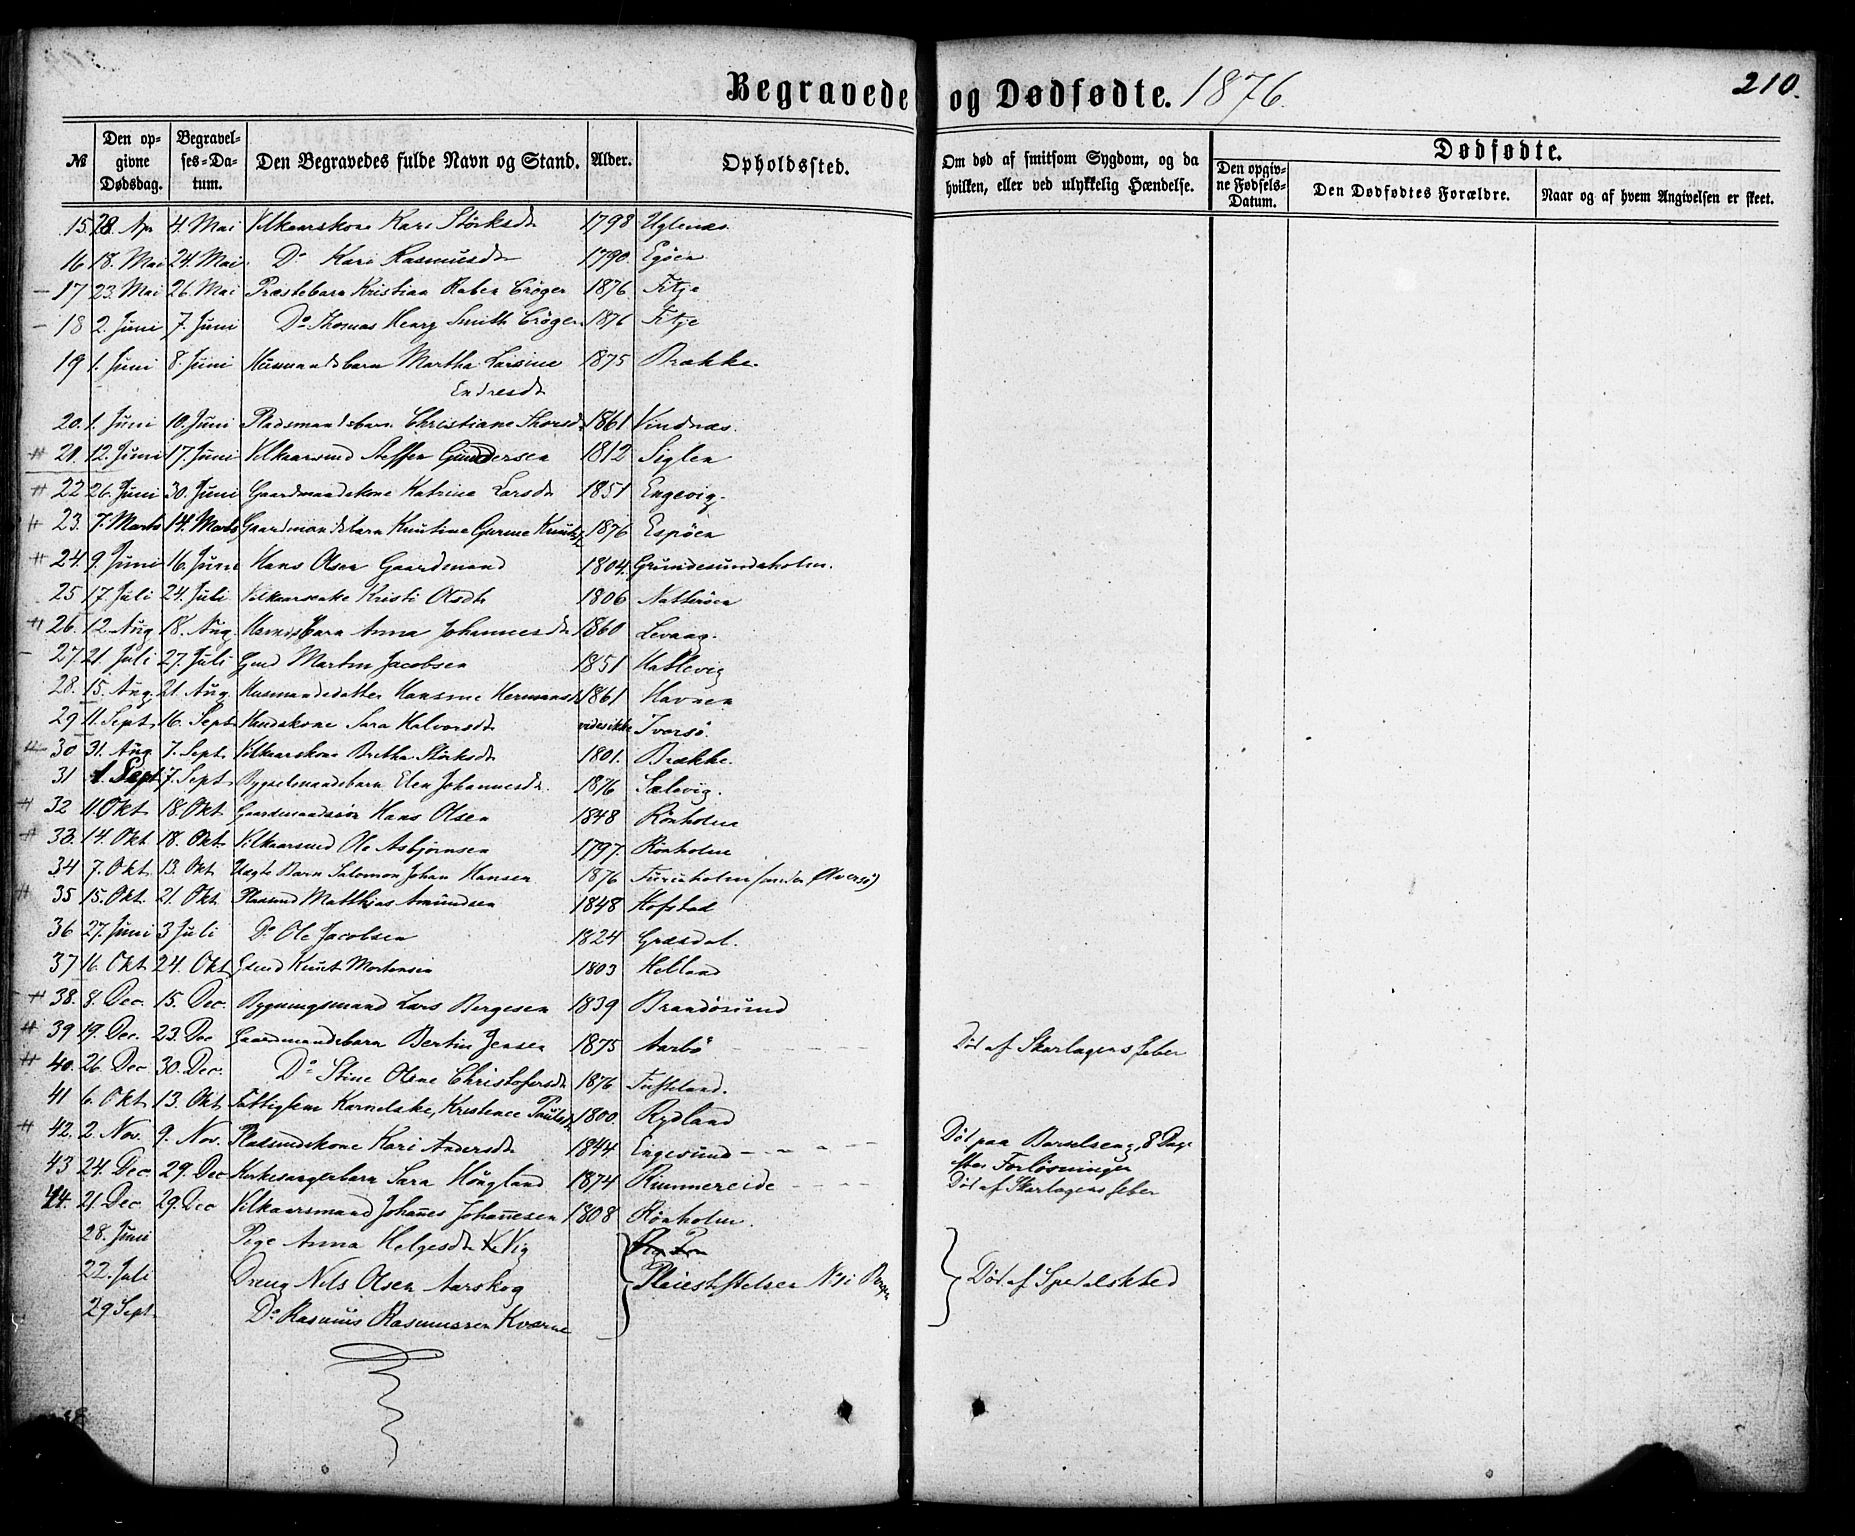 Begravede og Dødfødte. 1876.
210.
№ | Den opgivne Dødsdag. | Begravelses-Datum. | Den Begravedes fulde Navn og Stand. | Alder. | Opholdssted. | Om død af smitsom Sygdom, og da hvilken, eller ved ulykkelig Hændelse. | Dødfødte. | Den opgivne Fødsels-Datum. | Den Dødfødtes Forældre. | Naar og af hvem Angivelsen er skeet.
15 28. Ap 4. Mai Vilkaarskone Kari Størksdt 1798 Uglenæs.
16 18. Mai 24. Mai Do Kari Rasmusdt 1790. Egøen
17 23. Mai 26. Mai Præstebarn Kristian Raben Crøger 1876 Fitje
18 2. Juni 7. Juni Do Thomas Henry Smith Crøger 1876 Fitje
19 1. Juni 8. Juni Husmandsbarn Martha Larsine 1875 Brække.
Endresdt
20. 1. Juni 10. Juni Pladsmandsbarn Christiane Thorsd. 1861 Vindnæs.
21. 12. Juni 17. Juni Vilkaarsmd Steffen Gundersen 1812 Siglen
22 26. Juni 30. Juni Gaardmandskone Katrina Larsdt 1851 Engevig.
23. 7. Marts 14. Marts Gaardmandsbarn Knutine Gurine 1876 Espøen
24. 9. Juni 16. Juni Hans Olsen Gaardmand 1804. Grundesundsholm.
25 17. Juli 24. Juli Vilkaarsenke Kristi Olsdt 1806 Natterøen
26. 12. Aug 18. Aug. Anna Johannesdt 1860 Levaag.
27 21. Juli 27. Juli Gmd Martin Jacobsen 1851 Hatlevig
28. 15. Aug. 21 Aug. Husmandsdatter Hansine Hermansdt 1861 Havnen
29 11. Sept 16. Sept Sara Halvorsdt vides ikke Ivorsø.
30 31. Aug 7. Sept. Vilkaarskone Bretha Størksdt 1801. Brække.
31 1. Sept 7. Sept Bygselmandsbarn Elen Johannesdt. 1876 Sælevig.
32 11. Okt 18. Okt Gaardmandssøn Hans Olsen 1848 Rønholm
33. 14. Okt 18. Okt. Vilkaarsmd Ole Asbjørnsen 1797. Rønholm
34 7. Okt. 13. Okt Uægte Barn Salomon Johan Hansen 1876 Furuholm (under Olversø)
35 15. Okt. 21. Okt. Pladsmd Matthias Amundsen 1848 Hofstad
36 27. Juni 3 Juli Do Ole Jacobsen 1824 Græsdal.
37 16. Okt 24. Okt Knut Mortensen 1803 Helland
38. 8. Dec. 15. Dec. Bygningsmand Lars Børgesen 1839 Brandøsund
39 19. Dec. 23. Dec Gaardmandsbarn Bertin Jensen 1875 Aarbø Død af Skarlagensfeber
40. 26. Dec 30. Dec. Do Stine Olene Christofersdt 1876 Tufteland.
41 6. Okt 13. Okt Fattiglem Kornelske, Kristence 1800. Rydland
42. 2. Nov. 9. Nov. Pladsmdskone Kari Andersdt 1844. Engesund Død paa Barselseng, 8 Dage
efter Forløsningen
43 24. Dec 29. Dec Kirkesangerbarn Sara Hougland 1874 Rummereide Død af Skarlagensfeber
44. 21. Dec 29. Dec Vilkaarsmand Johañes Johañesen 1808 Rønholm.
28. Juni Pige Anna Helgesdt Vig
22. Juli Dreng Nils Olsen Aarskog Pleiestiftelsen N. 1 i Bergen Død af Spedalskhed
29 Sept. Do Rasmus Rasmussen Kværne